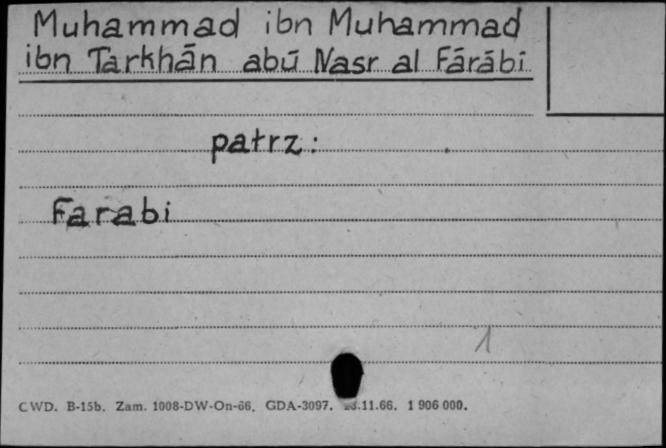 Muhammad ibn Muhammad
ibn Tarkhān abū Nasr al Fārābi
patrz:
Farabi
1
CWD. B-15b. Zam. 1008-DW-On-66. GDA-3097. .11.66. 1 906 000.